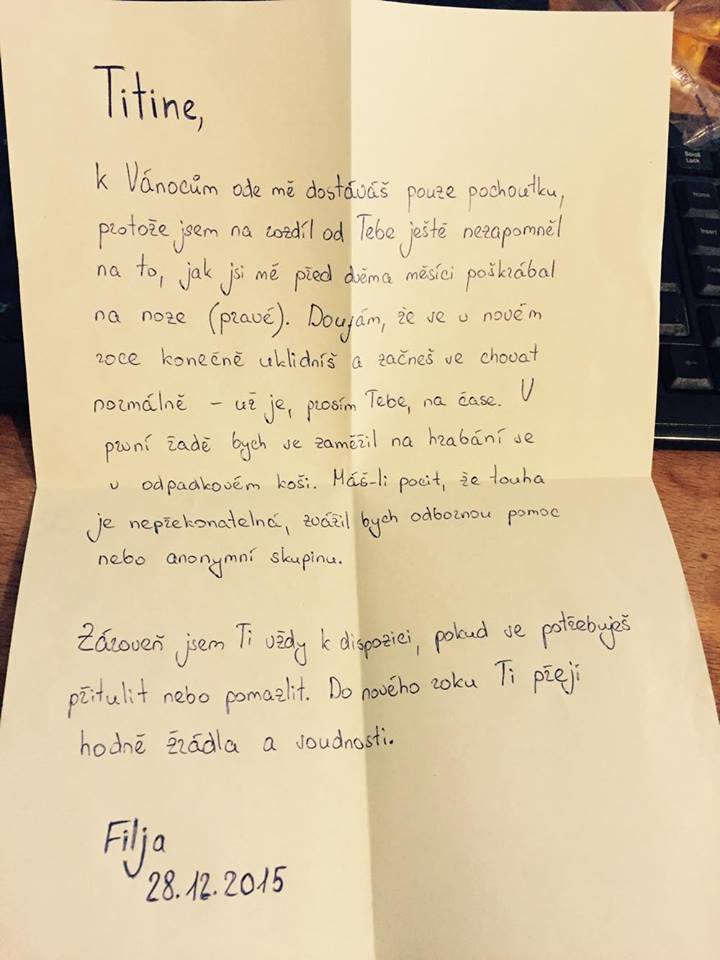 Titine,
k Vánocům ode mě dostáváš pouze pochoutku,
protože jsem na rozdíl od Tebe ještě nezapomněl
na to, jak jsi mě před dvěma měsíci poškrábal
na noze (pravé). Doufám, že se v novém
roce konečně uklidníš a začneš se chovat
normálně – už je, prosím Tebe, na čase. V
první řadě bych se zaměřil na hrabání se
v odpadkovém koši. Máš-li pocit, že touha
je nepřekonatelná, zvážil bych odbornou pomoc
nebo anonymní skupinu.
Zároveň jsem Ti vždy k dispozici, pokud se potřebuješ
přitulit nebo pomazlit. Do nového roku Ti přeji
hodně žrádla a soudnosti.
Filja
28.12.2015
Scroll
Lock
Home
Insert